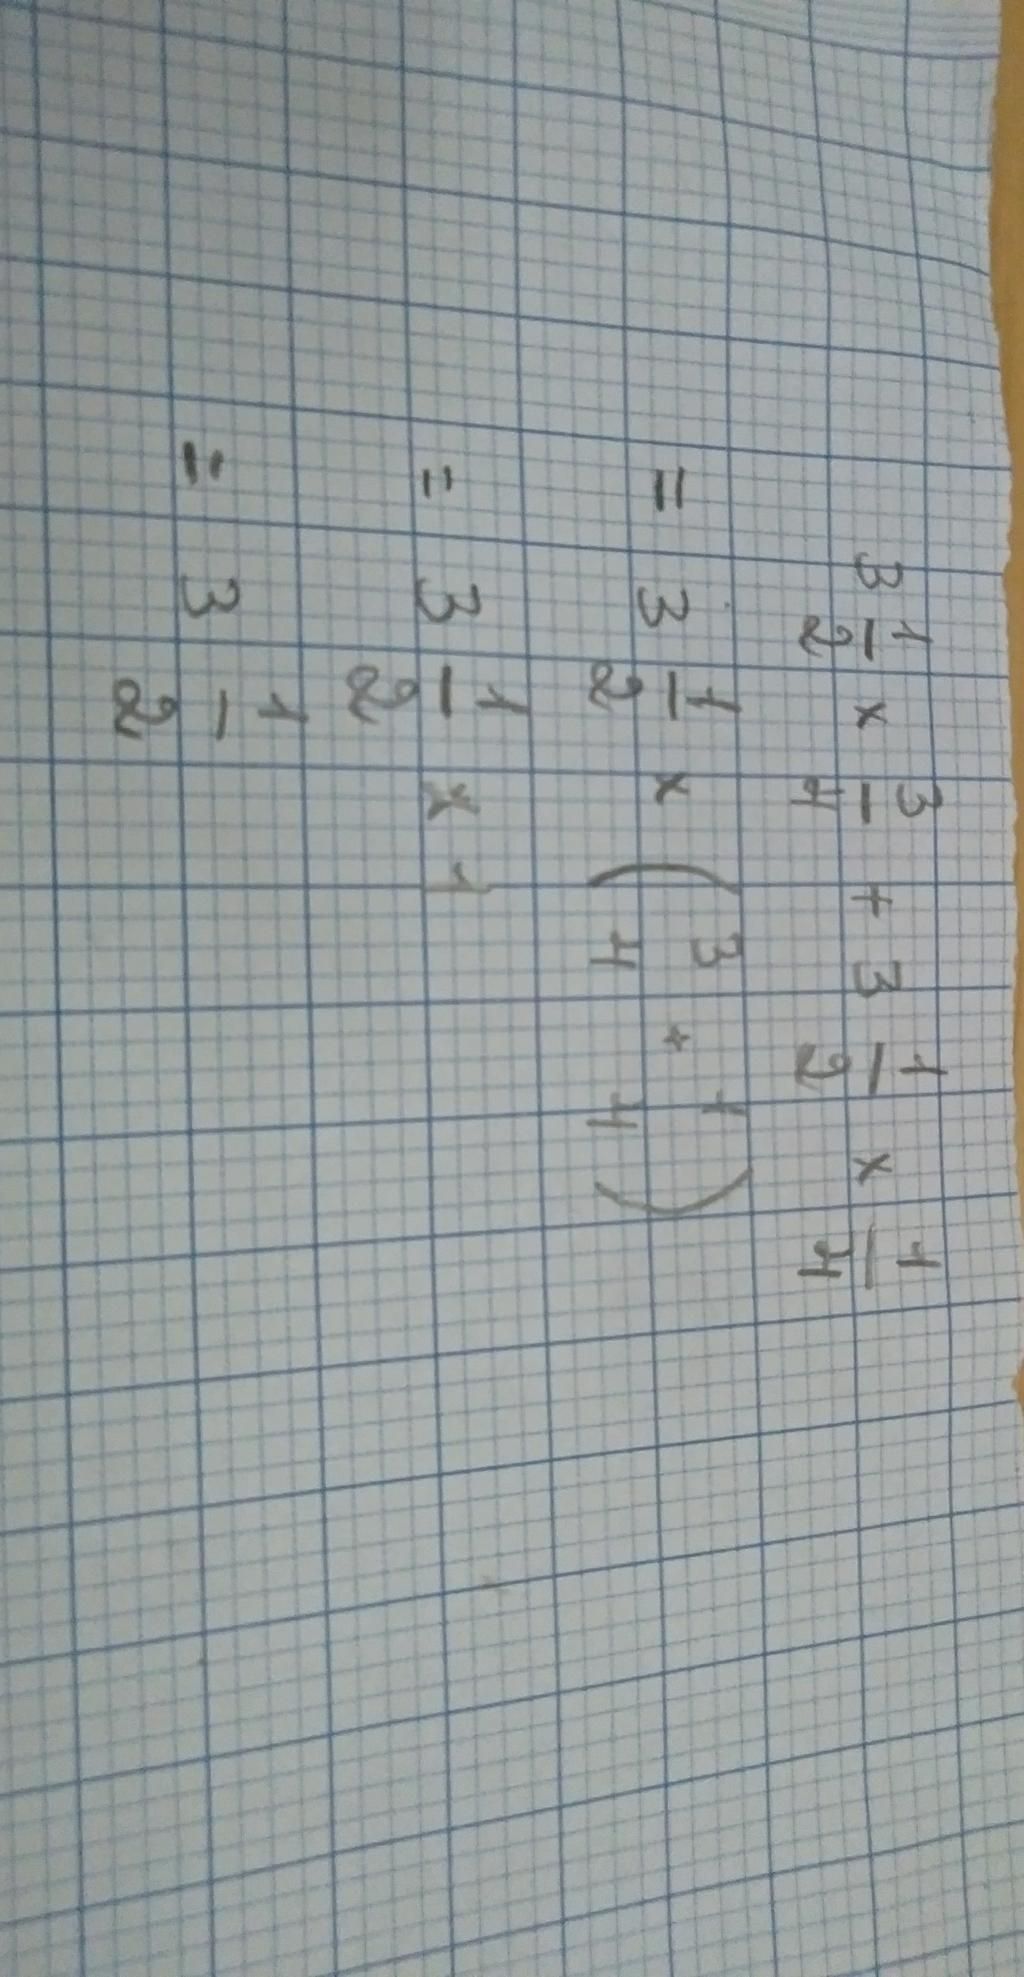 3 1/2 x 3/4 + 3 1/2 x 1/4
= 3 1/2 x (3/4 + 1/4)
= 3 1/2 x 1
= 3 1/2